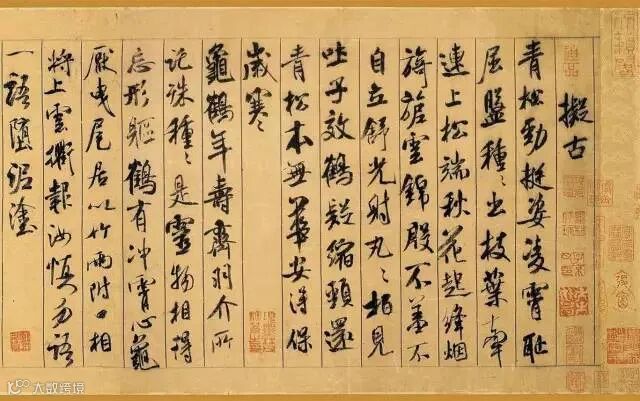 擬古
青松勁挺姿凌霄恥
屈盤種〻出枝葉牽
連上松端秋花起絳烟
旖旎雲錦殷不羞不
自立舒光射丸〻栢見
吐子效鶴疑縮頸還
青松本無華安得保
歲寒
龜鶴年壽齊羽介所
託殊種〻是靈物相得
忘形軀鶴有冲霄心龜
厭曳尾居以竹兩附口相
將上雲衢報汝慎勿語
一語墮泥塗
大数跨境